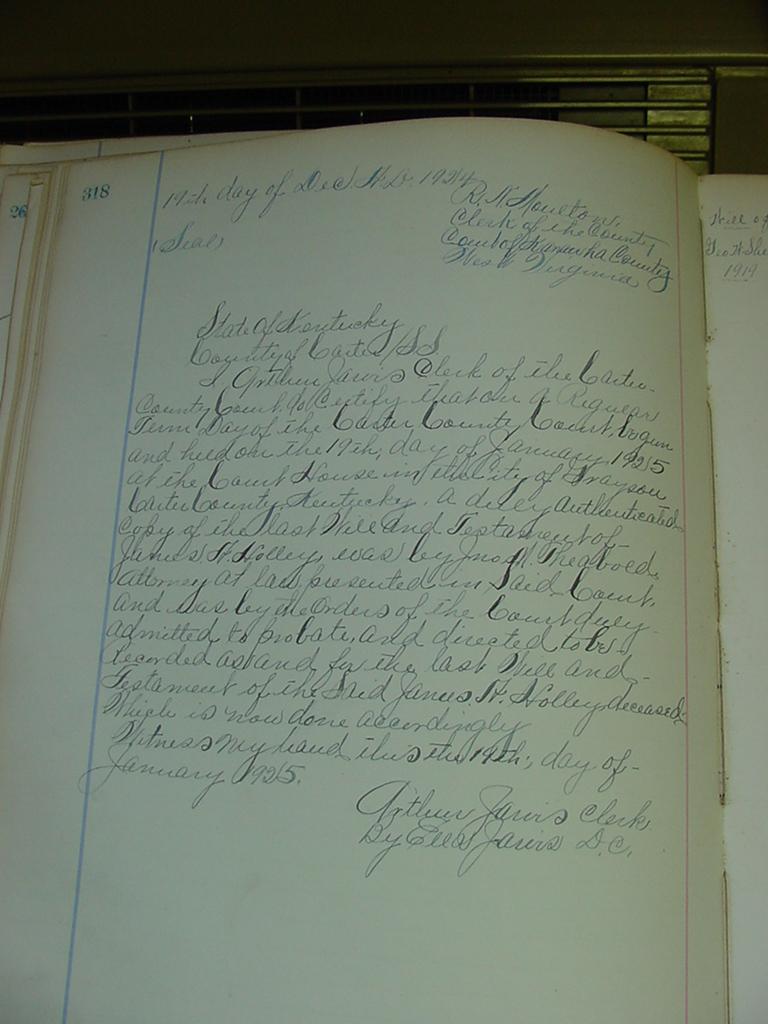 318
26
19th day of Dec. A.D. 1924
R. N. Moulton,
Clerk of the County
Court of Kanawha County
West Virginia
(Seal)
State of Kentucky
County of Carter / SS
I Arthur Jarvis Clerk of the Carter
County Court, do Certify that on a Regular
Term Day of the Carter County Court, begun
and held on the 19th, day of January, 1925
at the Court House in the City of Grayson
Carter County, Kentucky, a duly authenticated
copy of the last Will and Testament of
James H. Holley, was by Jno. M. Theobold,
Attorney at law, presented in Said Court,
and was by the Orders of the Court duly
admitted to probate, and directed to be
Recorded as and for the last Will and
Testament of the Said James H. Holley deceased,
Which is now done accordingly
Witness My hand this the 19th, day of
January 1925.
Arthur Jarvis Clerk
By Ella Jarvis D.C.
Will of
Geo H
1919